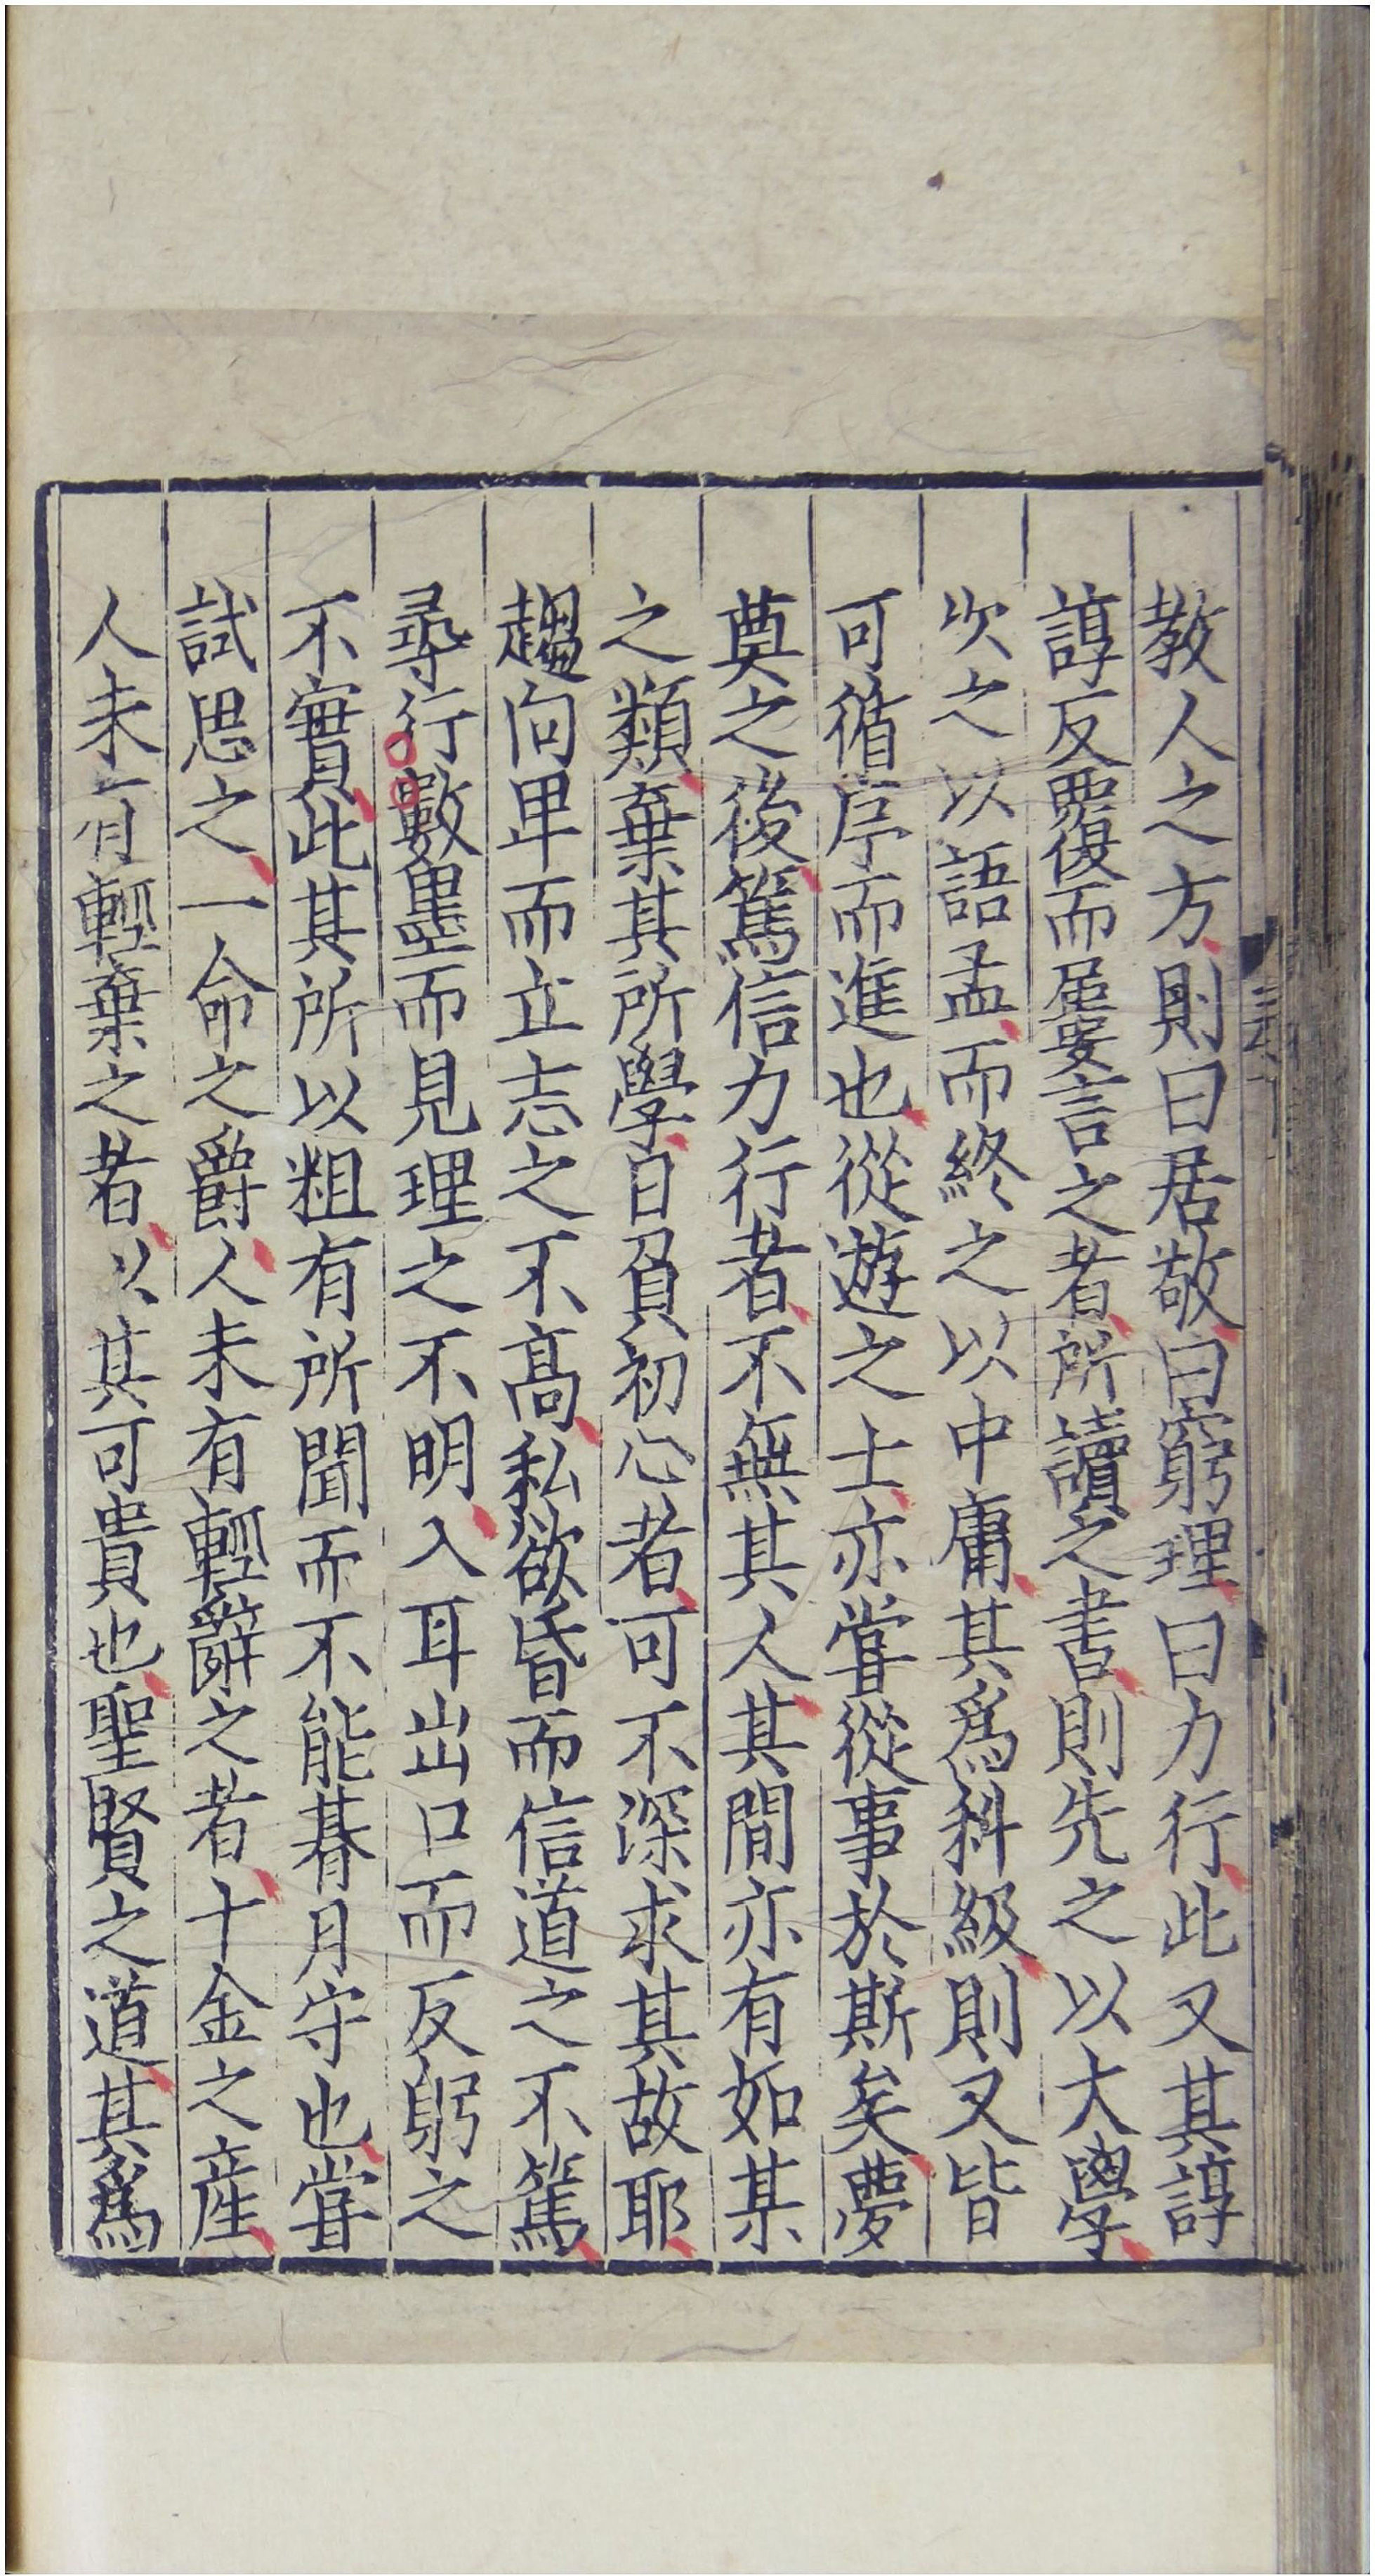 教人之方則曰居敬曰窮理曰力行此又其諄
諄反覆而屢言之者所讀之書則先之以大學
次之以語孟而終之以中庸其爲科級則又皆
可循序而進也從遊之士亦甞從事於斯矣夢
奠之後篤信力行者不無其人其間亦有如某
之類棄其所學自負初心者可不深求其故耶
趨向卑而立志之不高私欲昏而信道之不篤
尋行數墨而見理之不明入耳出口而反躬之
不實此其所以粗有所聞而不能朞月守也甞
試思之一命之爵人未有輕辭之者十金之産
人未有輕棄之者以其可貴也聖賢之道其爲